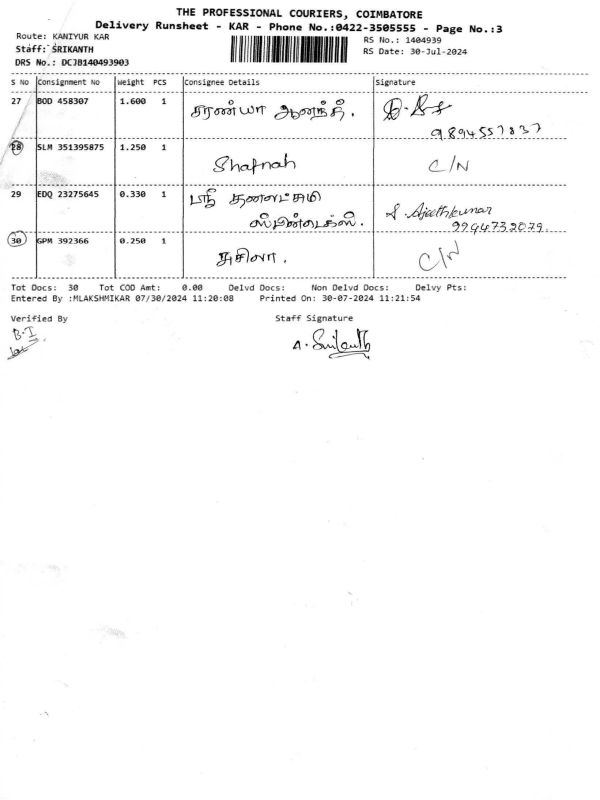 THE PROFESSIONAL COURIERS, COIMBATORE
Delivery Runsheet - KAR - Phone No.:0422-3505555 - Page No.:3
Route: KANIYUR KAR
RS No.: 1404939
Staff: SRIKANTH
RS Date: 30-Jul-2024
DRS No.: DCJB140493903
S No Consignment No Weight PCS Consignee Details Signature
27 BOD 458307 1.600 1 சரண்யா ஆனந்தி.
9894557837
28 SLM 351395875 1.250 1 Shafnah C/N
29 EDQ 23275645 0.330 1 ஸ்ரீ தனலட்சுமி S. Ajeethkumar
ஸ்பின்டைக்ஸ். 9994732079.
30 GPM 392366 0.250 1 C/N
Tot Docs: 30 Tot COD Amt: 0.00 Delvd Docs: Non Delvd Docs: Delvy Pts:
Entered By :MLAKSHMIKAR 07/30/2024 11:20:08 Printed On: 30-07-2024 11:21:54
Verified By Staff Signature
B.I
A. Srikanth